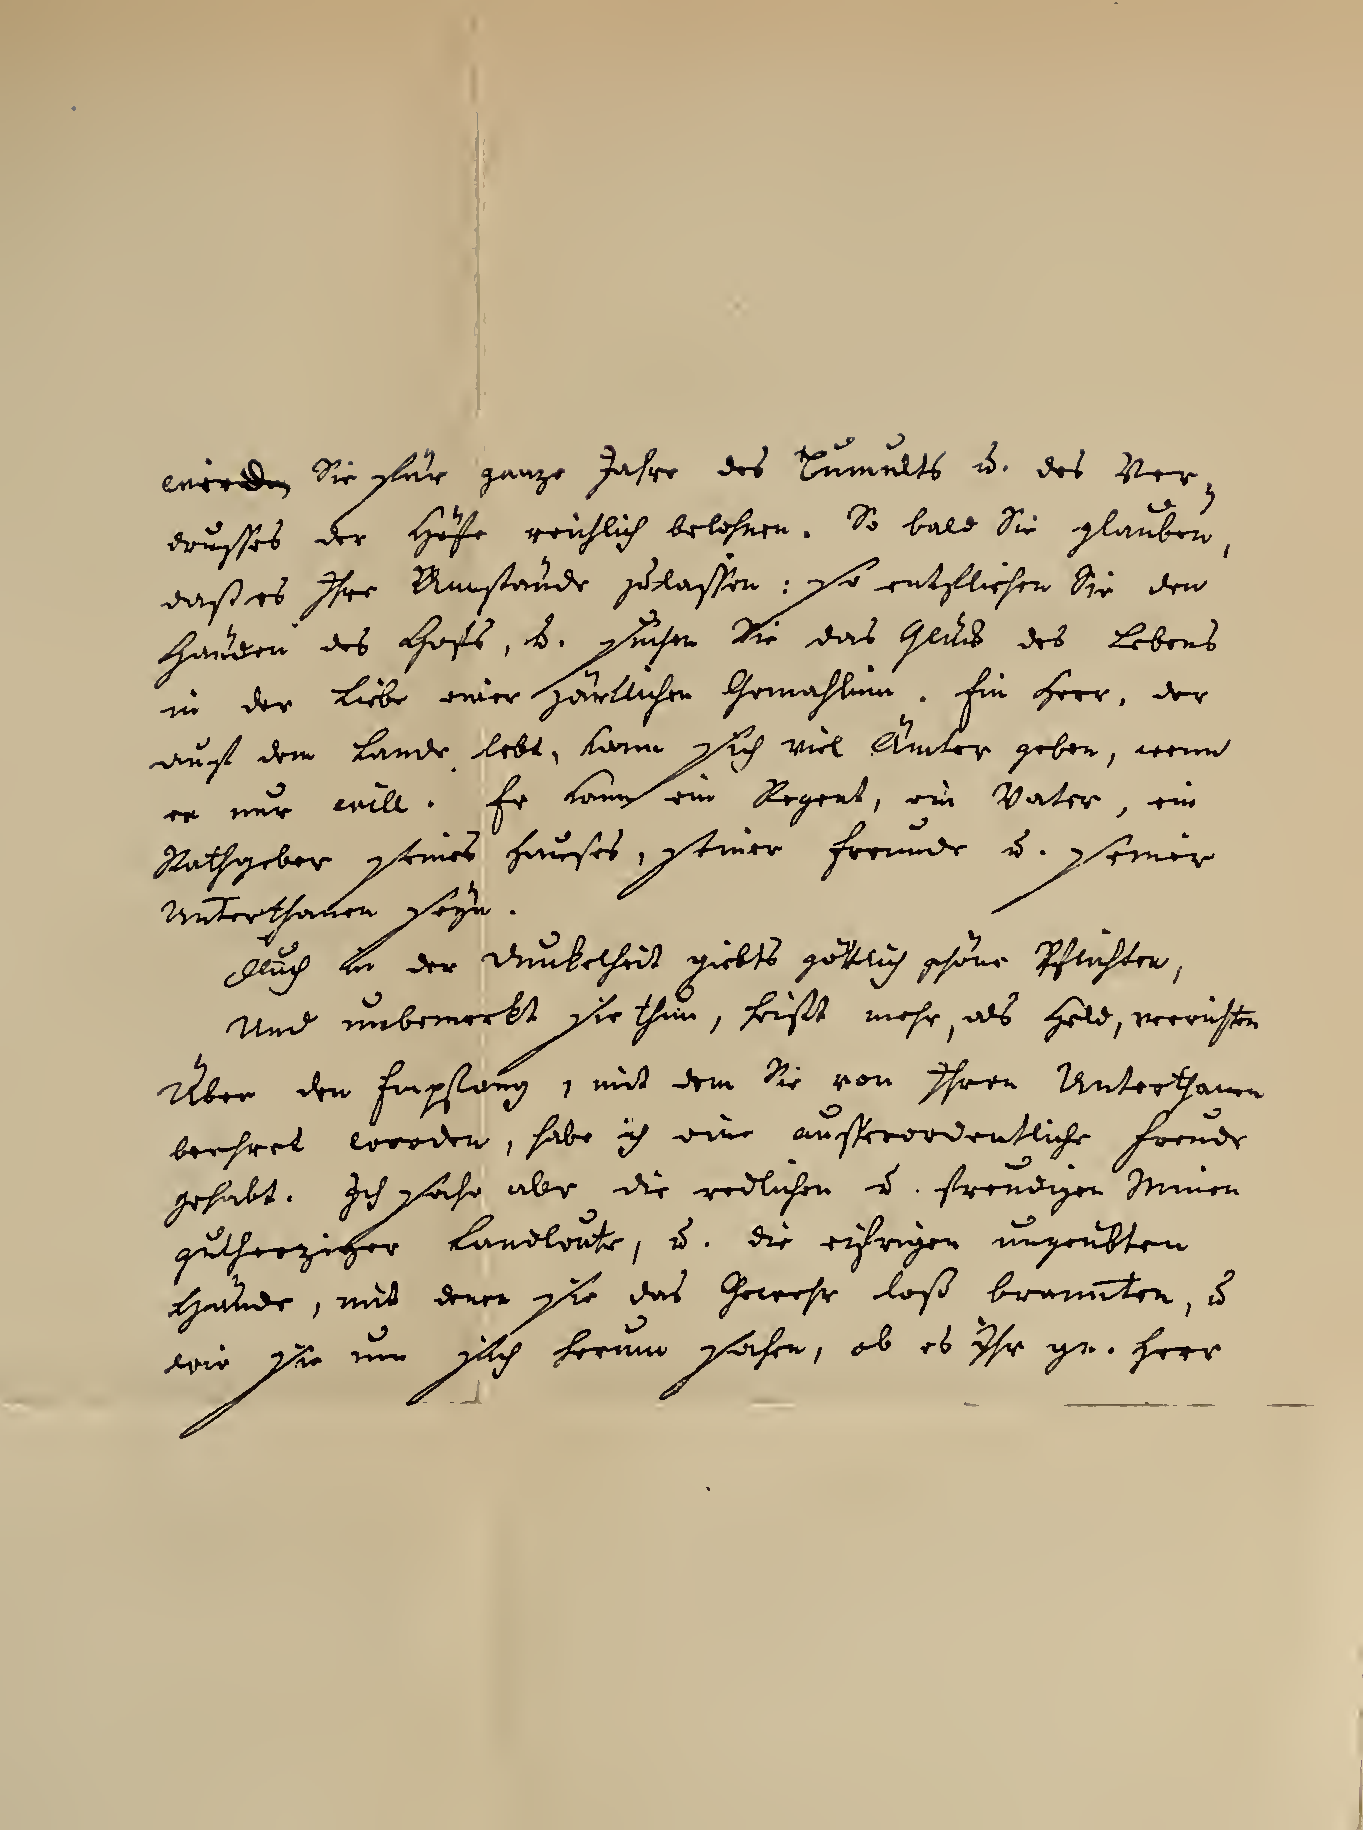 werden Sie für ganze Jahre des Tumults u. des Ver-
drusses der Höfe reichlich belohnen. So bald Sie glauben,
daß es Ihre Umstände zulassen: so entfliehen Sie den
Händen des Hofs, u. suchen Sie das Glück des Lebens
in der Liebe einer zärtlichen Gemahlinn. Ein Herr, der
auf dem Lande lebt, kann sich viel Ämter geben, wenn
er nur will. Er kann ein Regent, ein Vater, ein
Rathgeber seines Hauses, seiner Freunde u. seiner
Unterthanen seyn.
Auch in der Dunkelheit giebts göttlich schöne Pflichten,
Und unbemerkt sie thun, heißt mehr, als Held, verrichten
Über den Empfang, mit dem Sie von Ihren Unterthanen
beehret worden, habe ich eine ausserordentliche Freude
gehabt. Ich sahe alle die redlichen u. freudigen Minen
gutherziger Landleute, u. die eifrigen ungeübten
Hände, mit denen sie das Gewehr loß brannten, u
wie sie um sich herum sahen, ob es Ihr gn. Herr